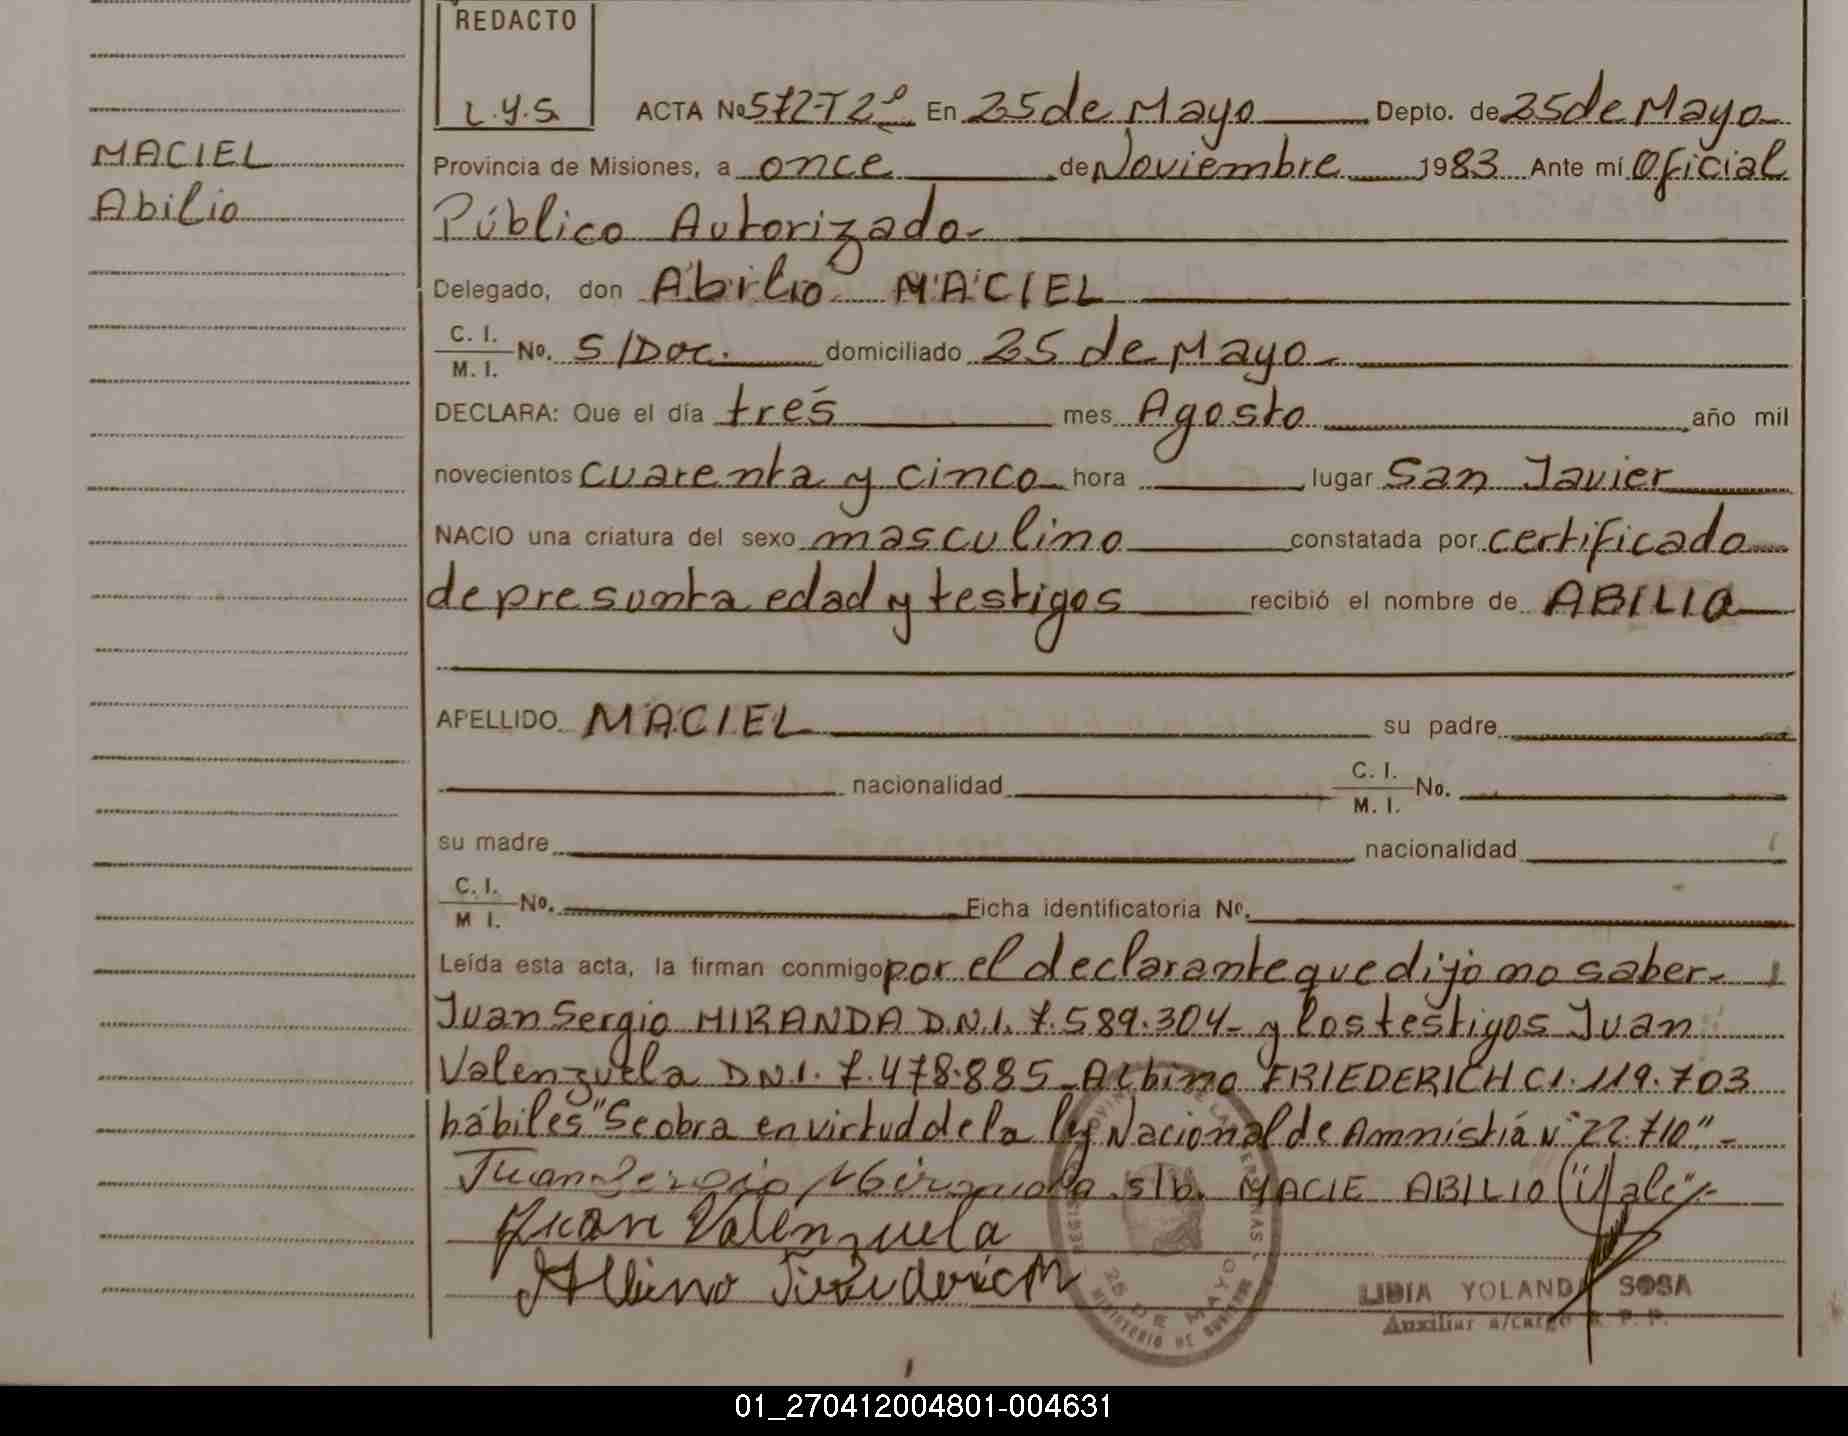 REDACTO
L.Y.S.
MACIEL
Abilio
ACTA Nº 572-T2º En 25 de Mayo Depto. de 25 de Mayo
Provincia de Misiones, a once de Noviembre 1983 Ante mí Oficial
Público Autorizado
Delegado, don Abilio MACIEL
C. I.
M. I. No. S/Doc. domiciliado 25 de Mayo
DECLARA: Que el día tres mes Agosto año mil
novecientos cuarenta y cinco hora lugar San Javier
NACIO una criatura del sexo masculino constatada por certificado
de presunta edad y testigos recibió el nombre de ABILIO
APELLIDO MACIEL su padre
nacionalidad C. I.
M. I. No.
su madre nacionalidad
C. I.
M I. No. Ficha identificatoria Nº.
Leída esta acta, la firman conmigo por el declarante que dijo no saber
Juan Sergio MIRANDA D.N.I. 7.589.304- y los testigos Juan
Valenzuela D.N.I. 7.478.885 Albino FRIEDERICH CI. 119.703
hábiles "Se obra en virtud de la ley Nacional de Amnistiá Nº 22.710"-
Juan Sergio Miranda s/b. MACIE ABILIO "Vale"-
Juan Valenzuela
Albino Friederich
25 DE MAYO
MINISTERIO DE GOBIERNO
LIDIA YOLANDA SOSA
Auxiliar a/cargo R. P. P.
01_270412004801-004631